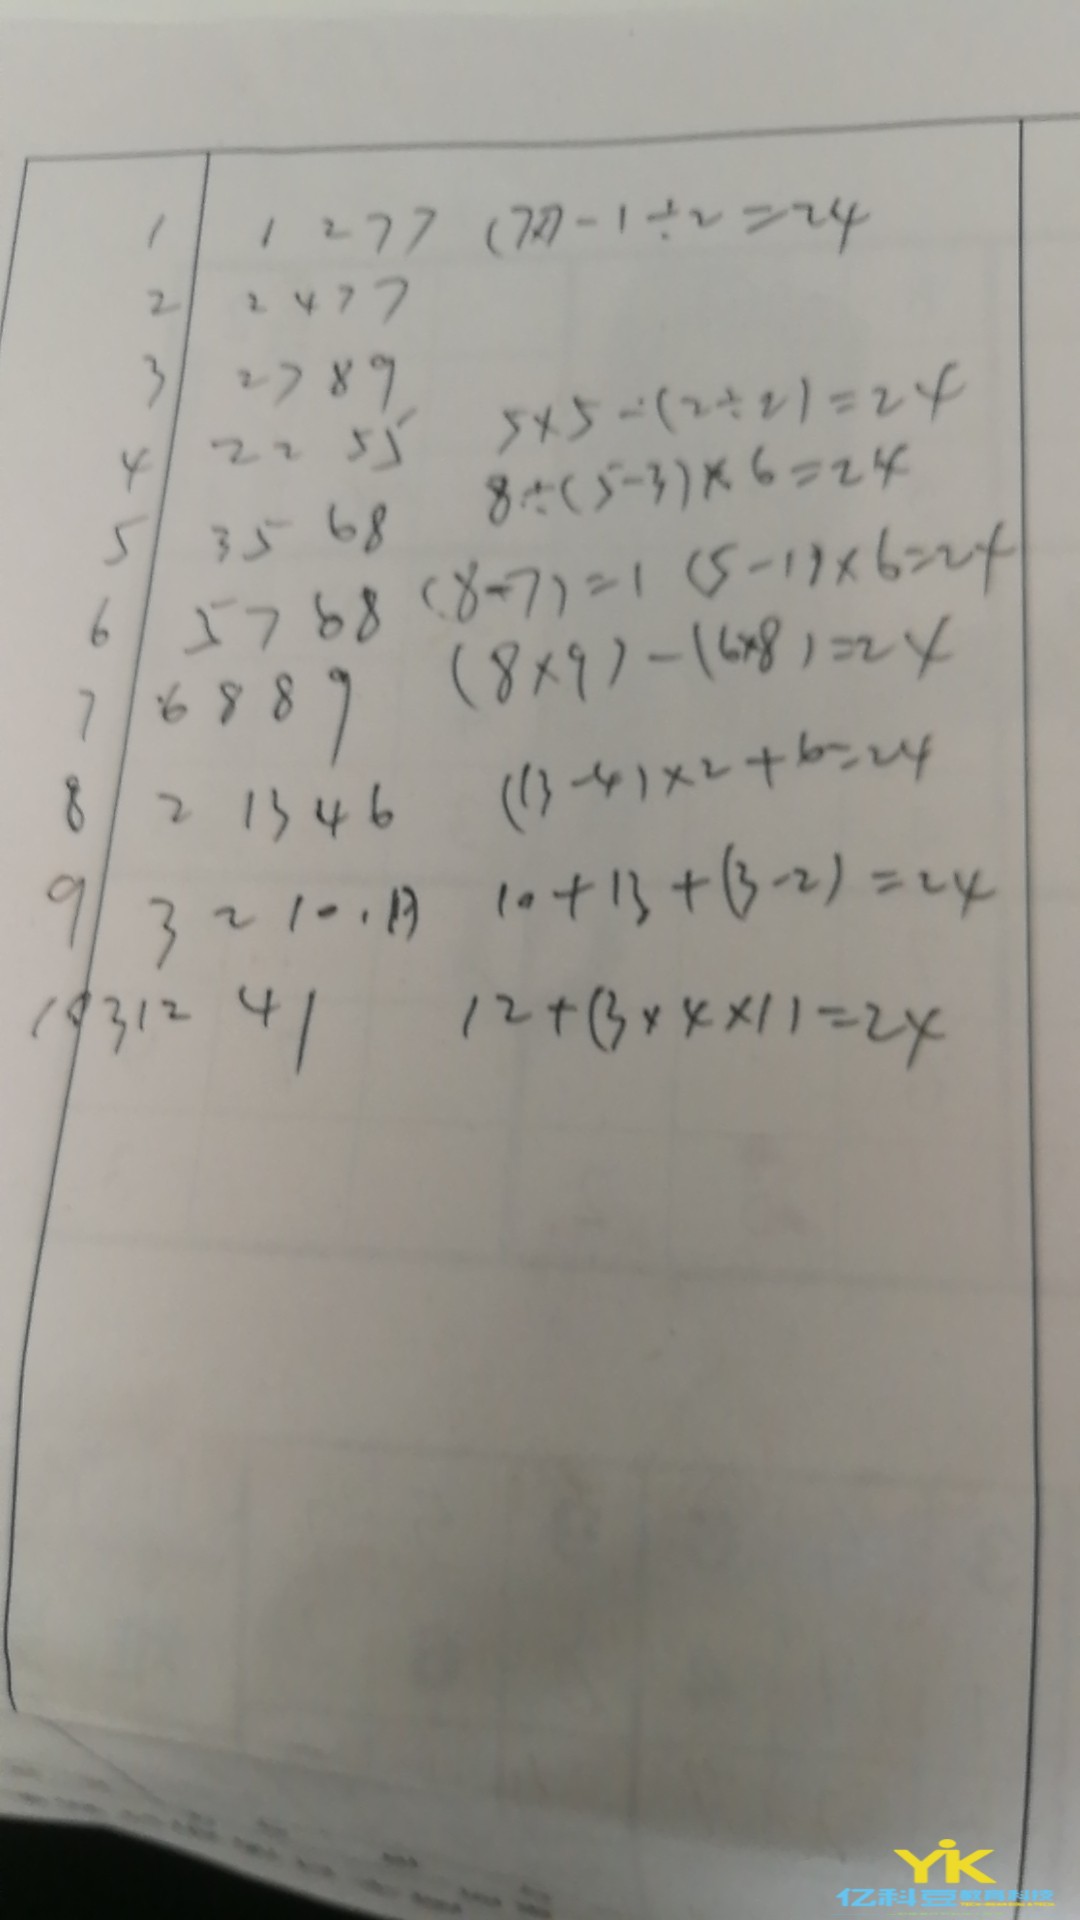 1 1 2 7 7 (7×7)-1÷2=24
2 2 4 7 7
3 2 7 8 9
4 2 2 5 5 5×5-(2÷2)=24
5 3 5 6 8 8÷(5-3)×6=24
6 5 7 6 8 (8-7)=1 (5-1)×6=24
7 6 8 8 9 (8×9)-(6×8)=24
8 2 13 4 6 (13-4)×2+6=24
9 3 2 10.13 10+13+(3-2)=24
10 3 12 4 1 12+(3×4×1)=24
YiK
亿科豆教育科技